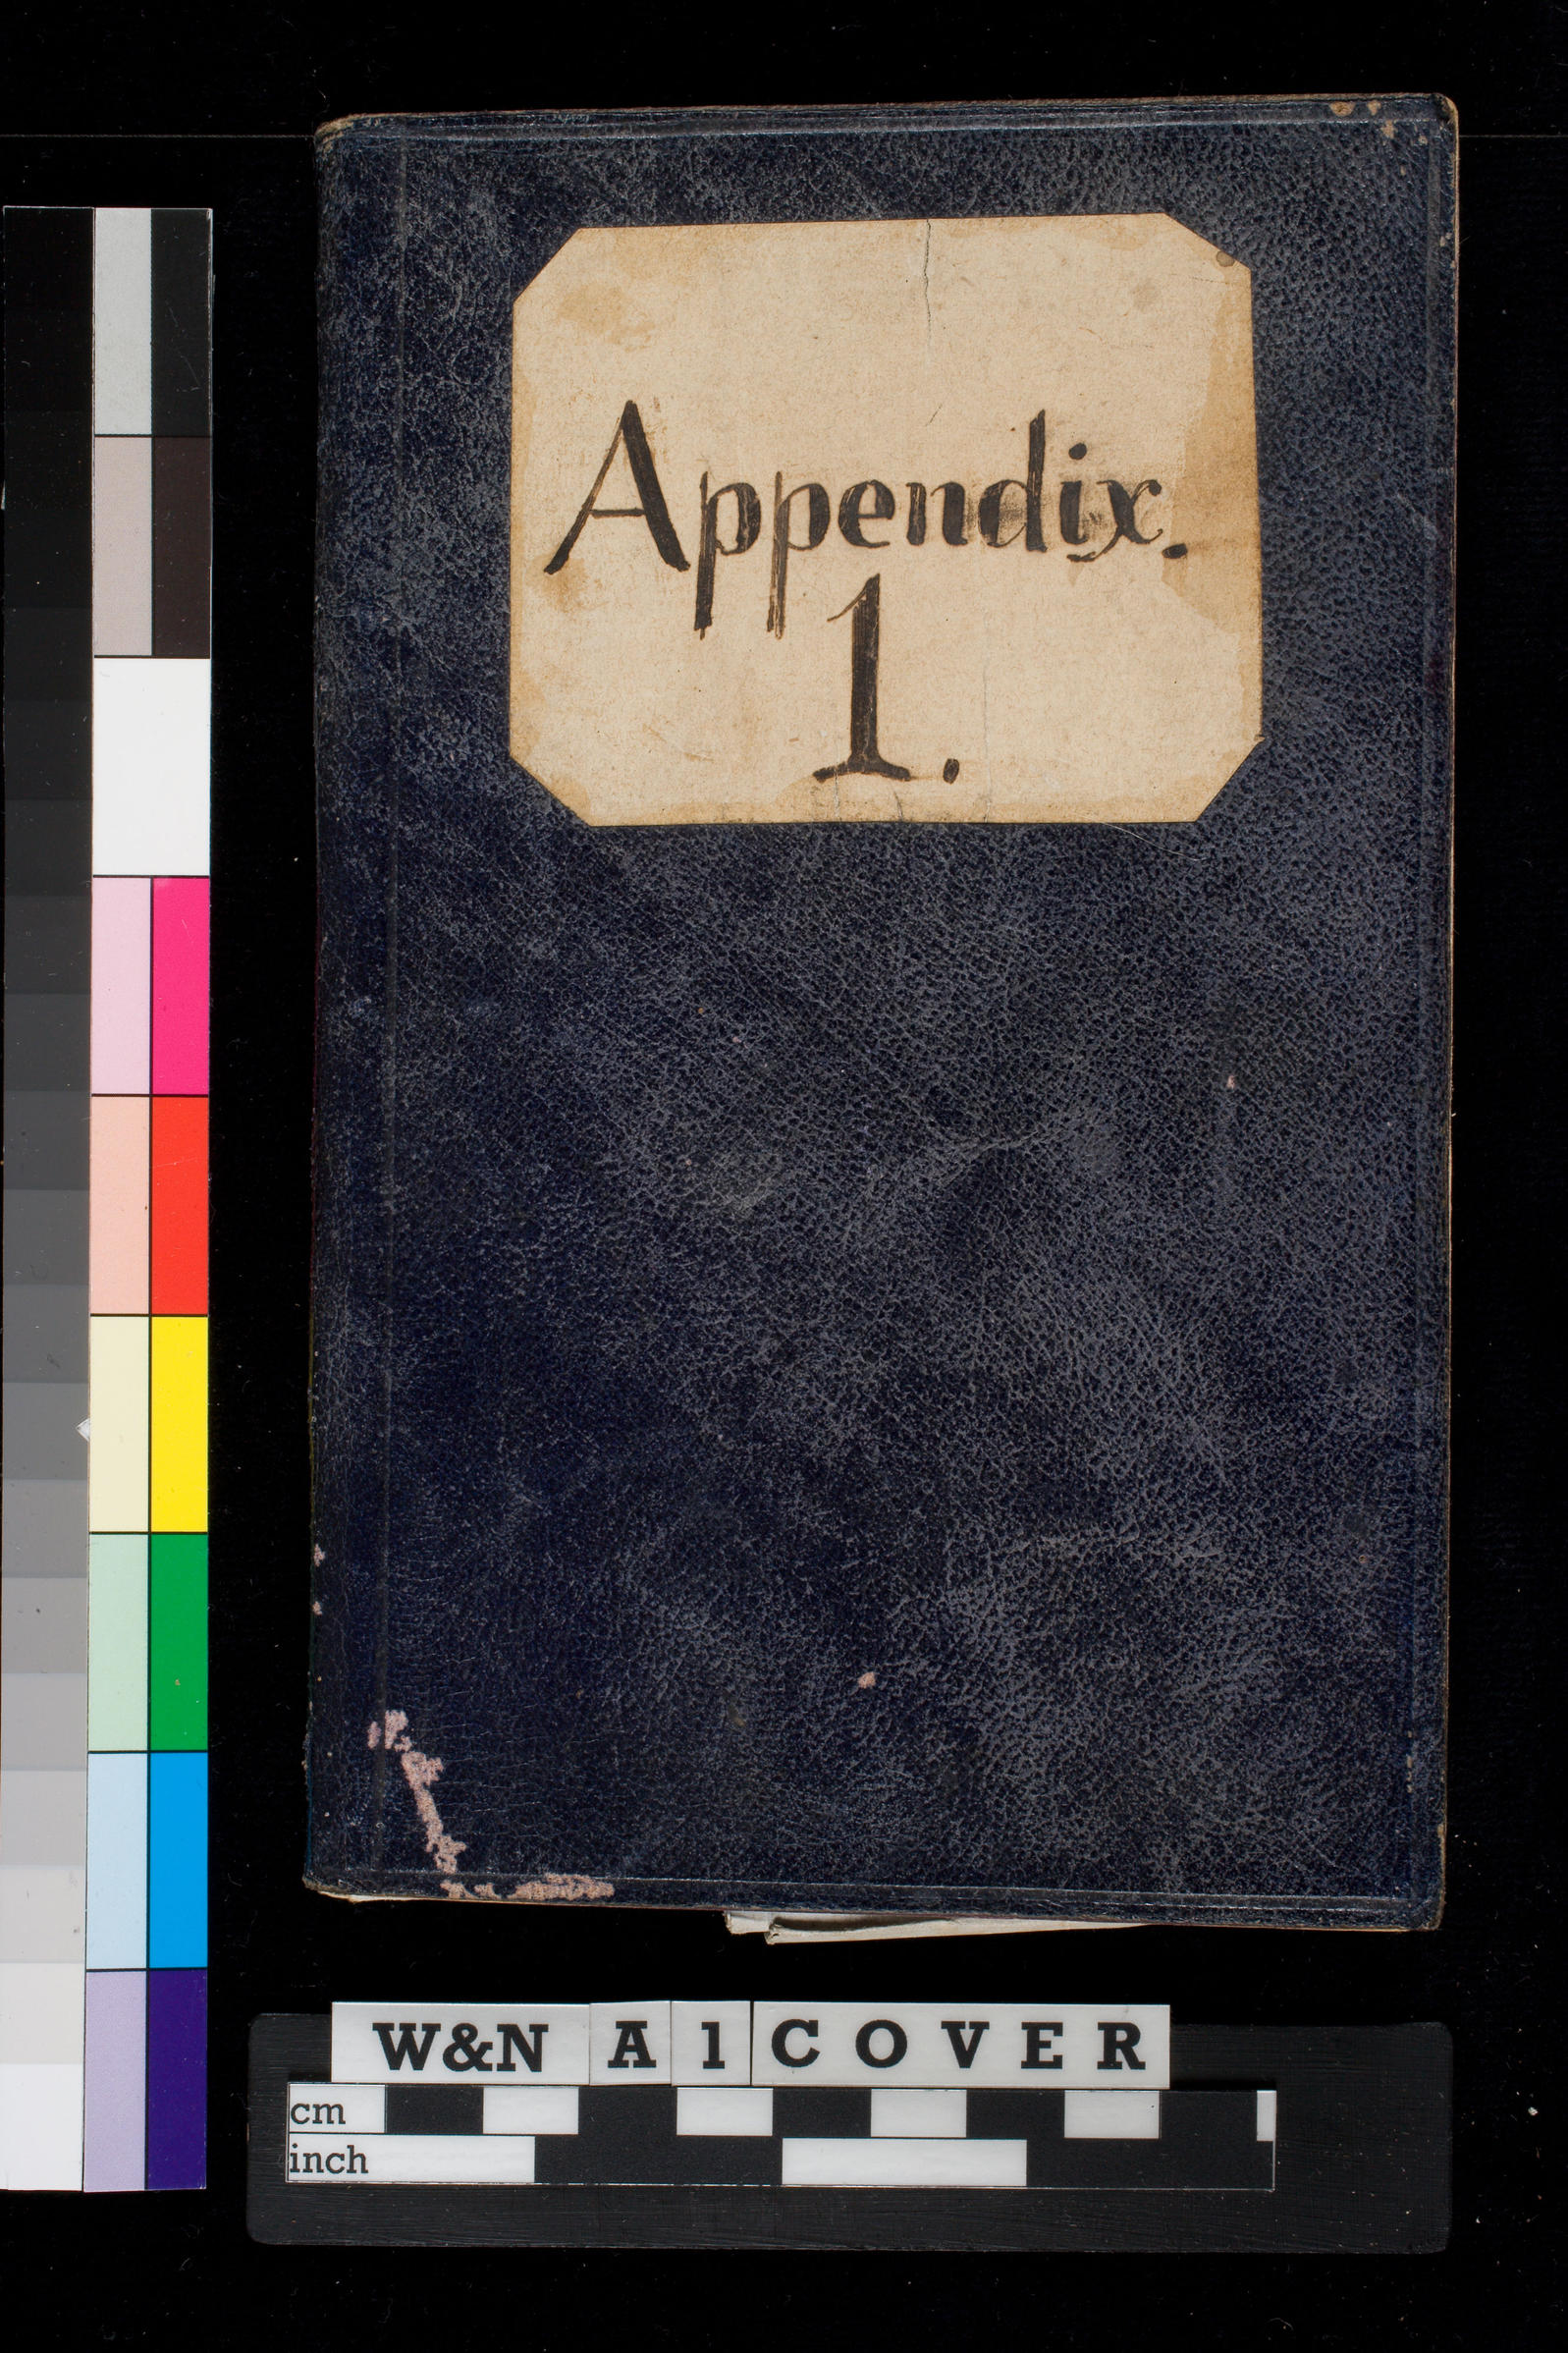 Appendix.
1.
W&N A1COVER
cm
inch